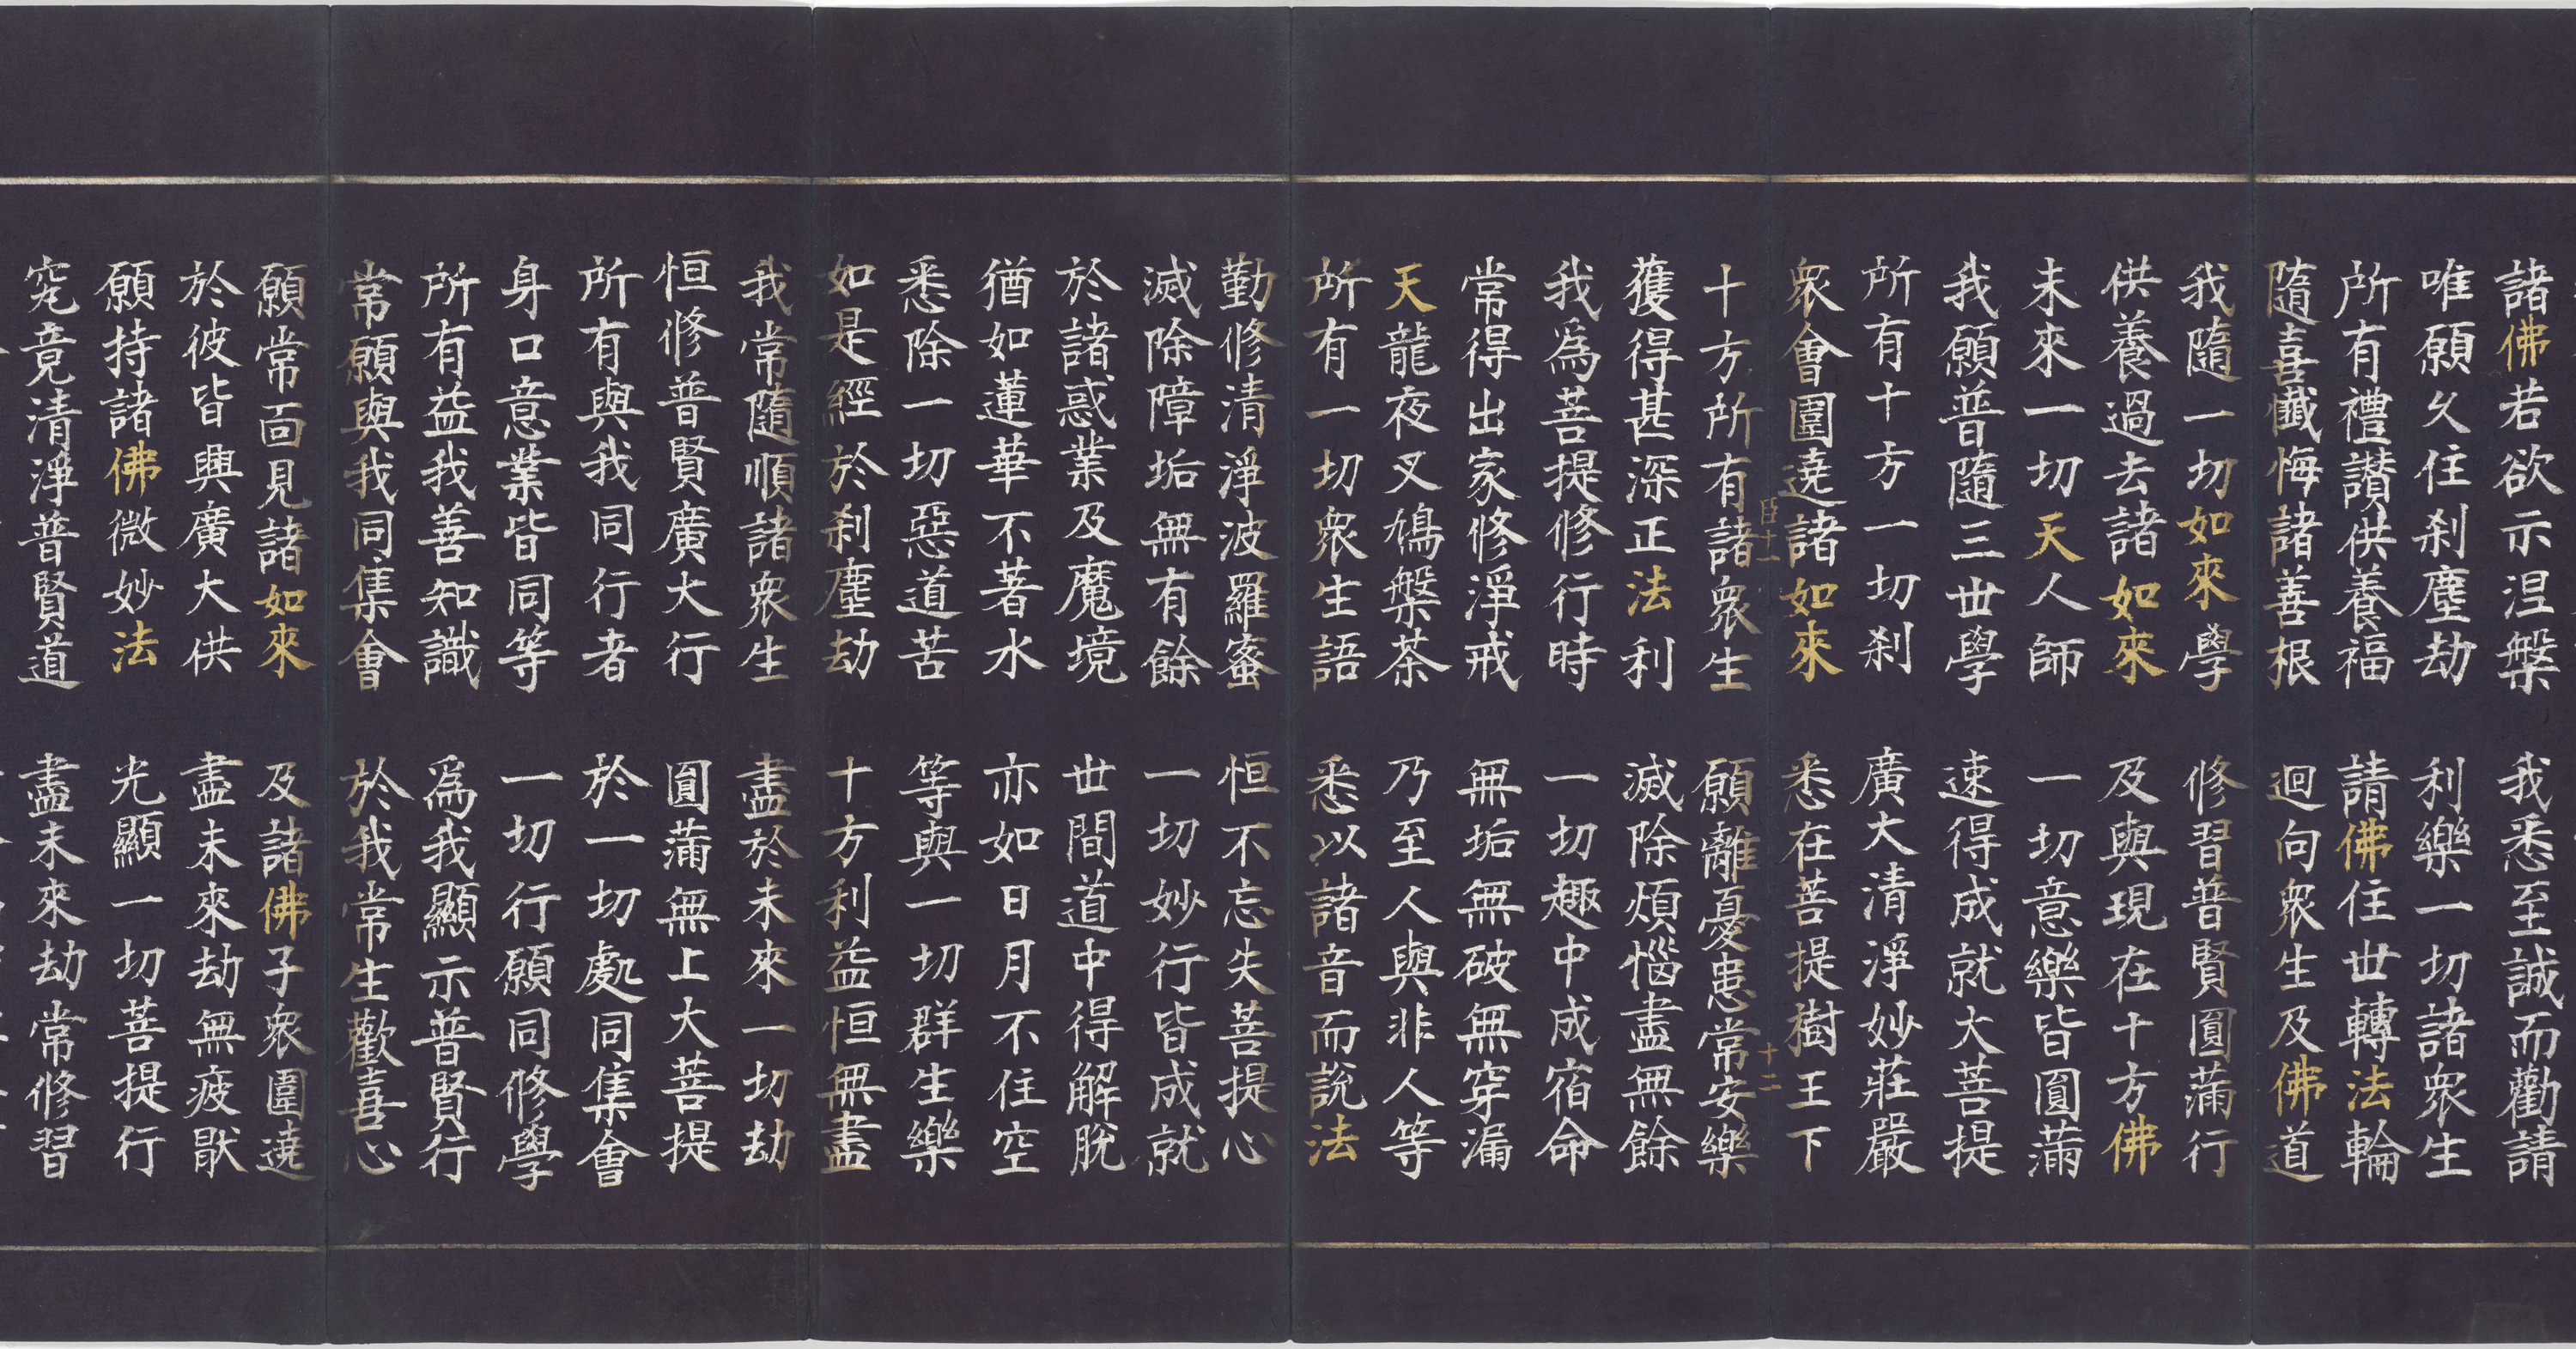 諸佛若欲示涅槃 我悉至誠而勸請
唯願久住刹塵劫 利樂一切諸衆生
所有禮讚供養福 請佛住世轉法輪
隨喜懺悔諸善根 迴向衆生及佛道
我隨一切如來學 修習普賢圓滿行
供養過去諸如來 及與現在十方佛
未來一切天人師 一切意樂皆圓滿
我願普隨三世學 速得成就大菩提
所有十方一切刹 廣大清淨妙莊嚴
衆會圍遶諸如來 悉在菩提樹王下
十方所有諸衆生 願離憂患常安樂
獲得甚深正法利 滅除煩惱盡無餘
我爲菩提修行時 一切趣中成宿命
常得出家修淨戒 無垢無破無穿漏
天龍夜叉鳩槃茶 乃至人與非人等
所有一切衆生語 悉以諸音而說法
勤修清淨波羅蜜 恒不忘失菩提心
滅除障垢無有餘 一切妙行皆成就
於諸惑業及魔境 世間道中得解脫
猶如蓮華不著水 亦如日月不住空
悉除一切惡道苦 等與一切群生樂
如是經於刹塵劫 十方利益恒無盡
我常隨順諸衆生 盡於未來一切劫
恒修普賢廣大行 圓滿無上大菩提
所有與我同行者 於一切處同集會
身口意業皆同等 一切行願同修學
所有益我善知識 爲我顯示普賢行
常願與我同集會 於我常生歡喜心
願常面見諸如來 及諸佛子衆圍遶
於彼皆興廣大供 盡未來劫無疲猒
願持諸佛微妙法 光顯一切菩提行
究竟清淨普賢道 盡未來劫常修習